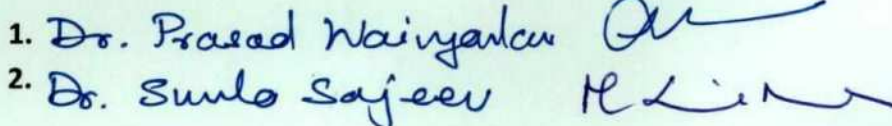 1. Dr. Prasad Waingankar
2. Dr. Sunlo Sajeev